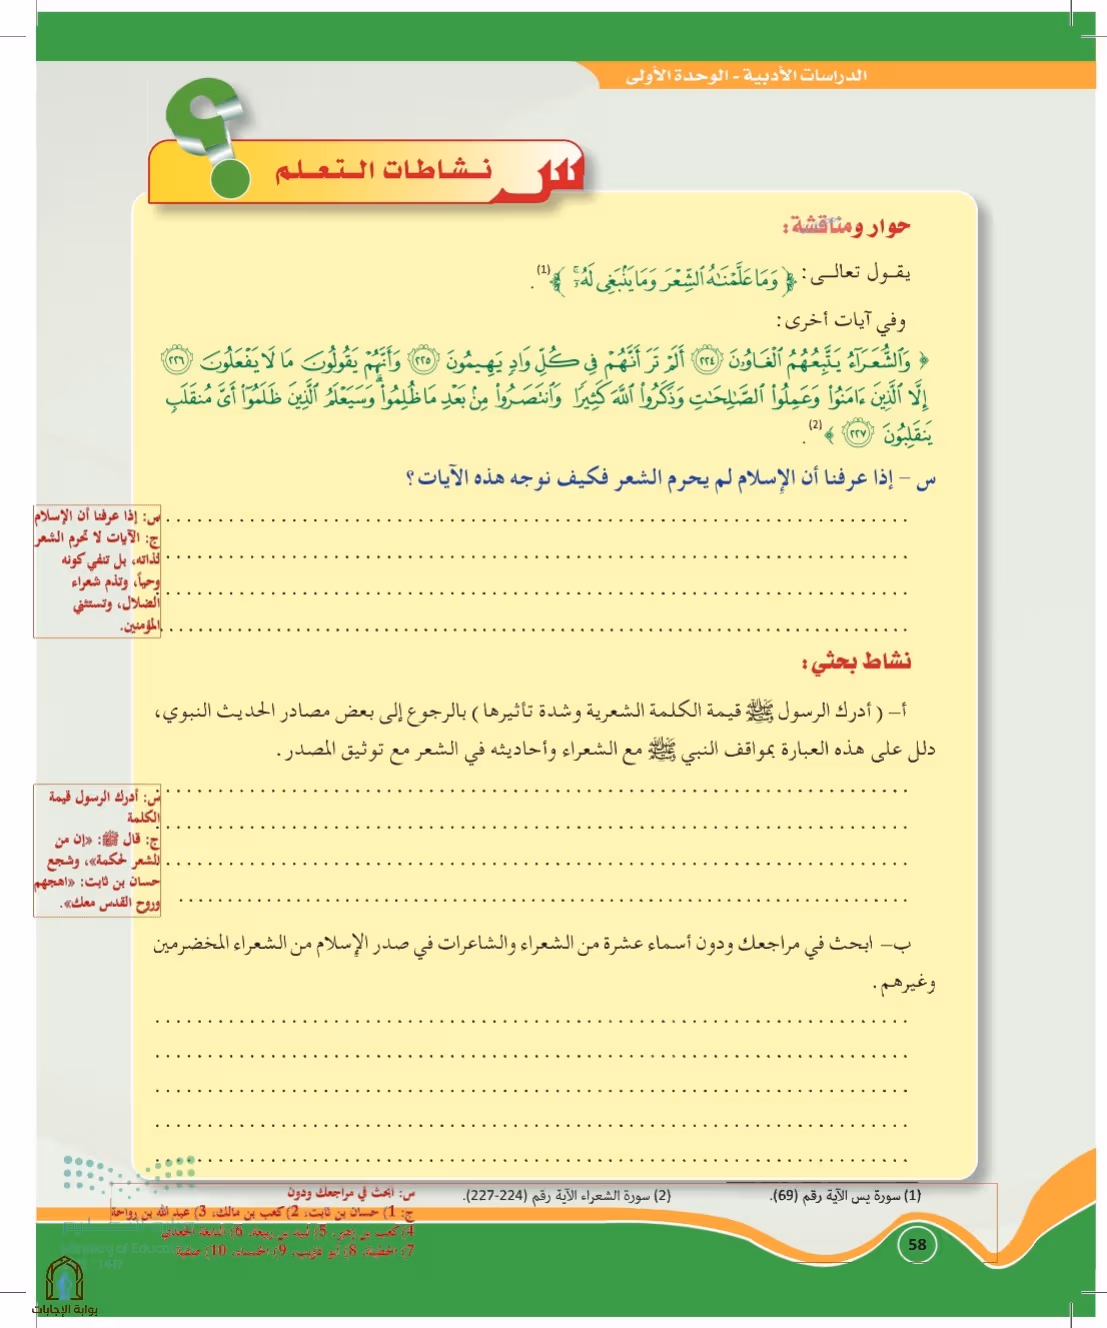 الدراسات الأدبية - الوحدة الأولى
؟
س نشاطات التعلم
حوار ومناقشة:
يقول تعالى: ﴿ وَمَا عَلَّمْنَاهُ الشِّعْرَ وَمَا يَنۢبَغِى لَهُۥٓ ۚ ﴾(1).
وفي آيات أخرى:
﴿ وَالشُّعَرَاءُ يَتَّبِعُهُمُ الْغَاوُۥنَ ٢٢٤ أَلَمْ تَرَ أَنَّهُمْ فِى كُلِّ وَادٍ يَهِيمُونَ ٢٢٥ وَأَنَّهُمْ يَقُولُونَ مَا لَا يَفْعَلُونَ ٢٢٦
إِلَّا الَّذِينَ ءَامَنُوا وَعَمِلُوا الصَّالِحَاتِ وَذَكَرُوا اللَّهَ كَثِيرًا وَانتَصَرُوا مِنۢ بَعْدِ مَا ظُلِمُوا وَسَيَعْلَمُ الَّذِينَ ظَلَمُوا أَىَّ مُنقَلَبٍ
يَنقَلِبُونَ ٢٢٧ ﴾(2).
س – إذا عرفنا أن الإسلام لم يحرم الشعر فكيف نوجه هذه الآيات؟
س: إذا عرفنا أن الإسلام
ج: الآيات لا تحرم الشعر
لذاته، بل تنفي كونه
وحياً، وتذم شعراء
الضلال، وتستثني
المؤمنين.
نشاط بحثي:
أ– ( أدرك الرسول ﷺ قيمة الكلمة الشعرية وشدة تأثيرها ) بالرجوع إلى بعض مصادر الحديث النبوي،
دلل على هذه العبارة بمواقف النبي ﷺ مع الشعراء وأحاديثه في الشعر مع توثيق المصدر.
س: أدرك الرسول قيمة
الكلمة
ج: قال ﷺ: «إن من
للشعر لحكمة»، وشجع
حسان بن ثابت: «اهجهم
وروح القدس معك».
ب– ابحث في مراجعك ودون أسماء عشرة من الشعراء والشاعرات في صدر الإسلام من الشعراء المخضرمين
وغيرهم.
(1) سورة يس الآية رقم (69).
(2) سورة الشعراء الآية رقم (224-227).
س: ابحث في مراجعك ودون
ج: 1) حسان بن ثابت، 2) كعب بن مالك، 3) عبد الله بن رواحة
4) كعب بن زهير، 5) لبيد بن ربيعة، 6) النابغة الجعدي
7) الحطيئة، 8) أبو ذؤيب، 9) الخنساء، 10) صفية
Ministry of Educa
58
بوابة الإجابات